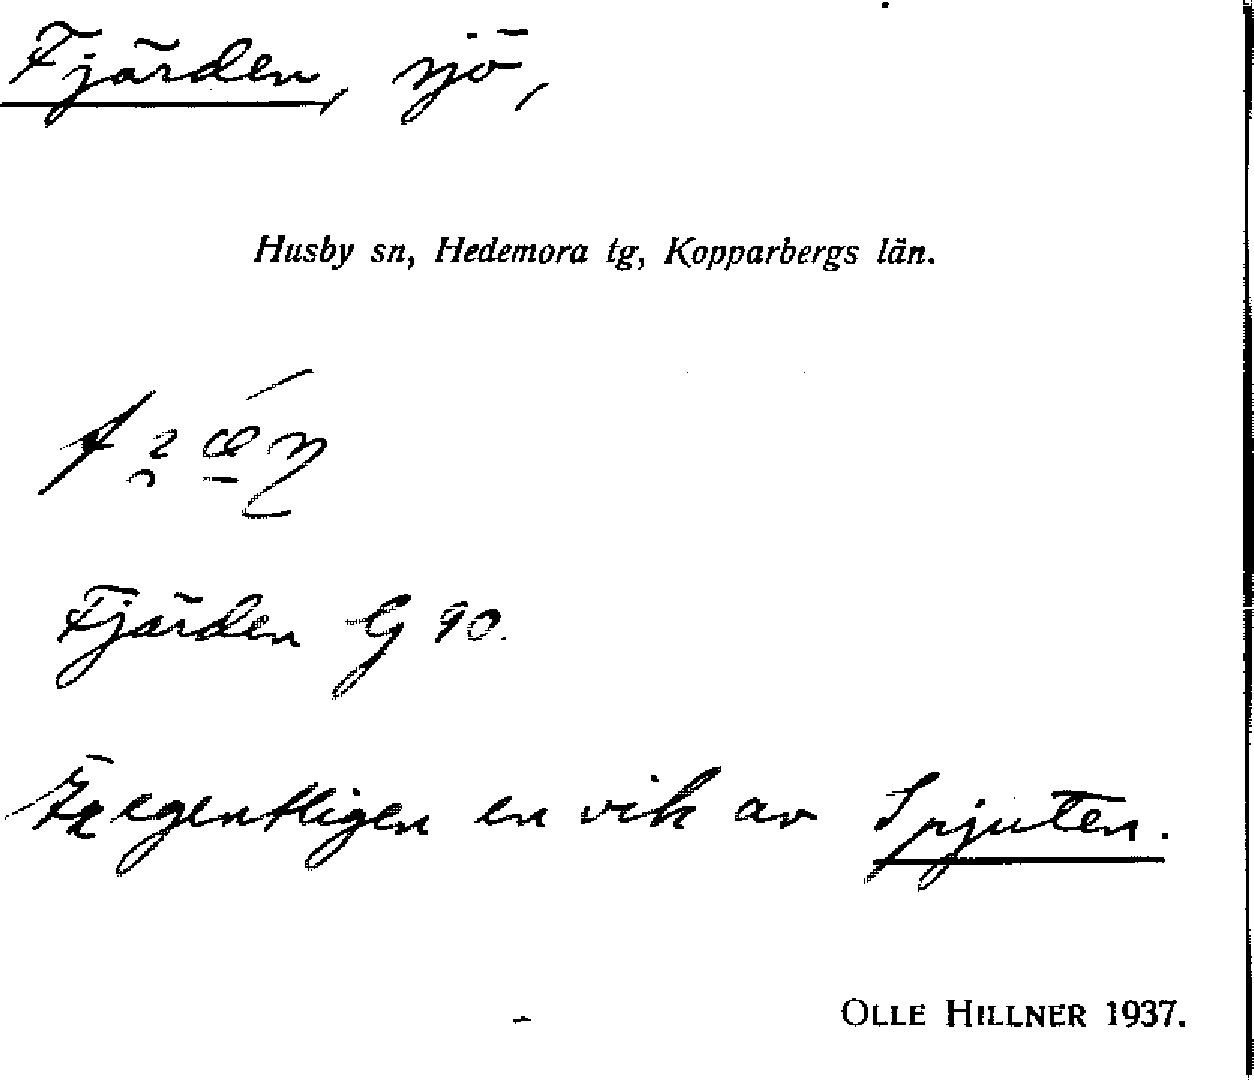 Fjärden, sjö,
Husby sn, Hedemora tg, Kopparbergs län.
Fjärden G 90.
Är egentligen en vik av Spjuten.
OLLE HILLNER 1937.